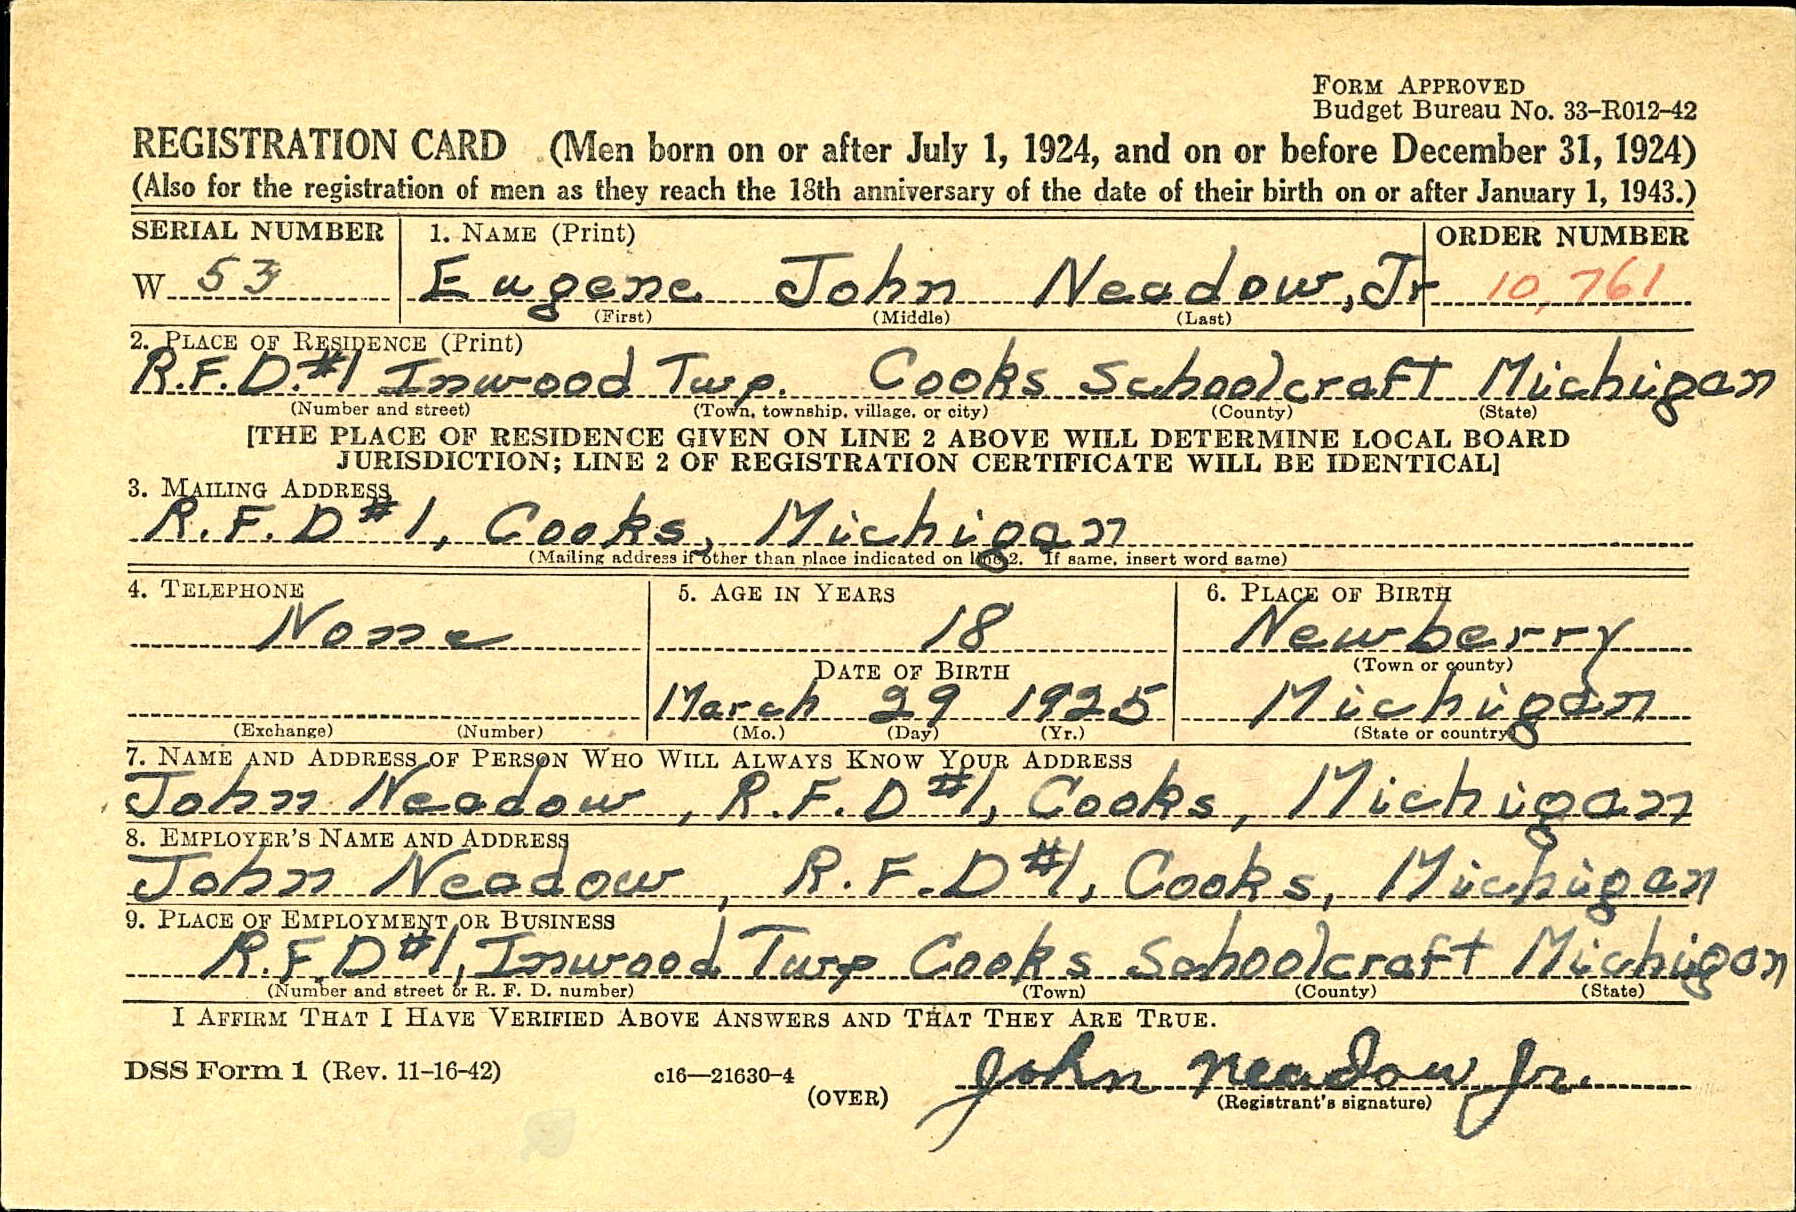 FORM APPROVED
Budget Bureau No. 33–R012–42
REGISTRATION CARD (Men born on or after July 1, 1924, and on or before December 31, 1924)
(Also for the registration of men as they reach the 18th anniversary of the date of their birth on or after January 1, 1943.)
SERIAL NUMBER 1. NAME (Print) ORDER NUMBER
W 53 Eugene John Neadow, Jr 10,761
(First) (Middle) (Last)
2. PLACE OF RESIDENCE (Print)
R.F.D.#1 Inwood Twp. Cooks Schoolcraft Michigan
(Number and street) (Town, township, village, or city) (County) (State)
[THE PLACE OF RESIDENCE GIVEN ON LINE 2 ABOVE WILL DETERMINE LOCAL BOARD
JURISDICTION; LINE 2 OF REGISTRATION CERTIFICATE WILL BE IDENTICAL]
3. MAILING ADDRESS
R.F.D #1, Cooks, Michigan
(Mailing address if other than place indicated on line 2. If same, insert word same)
4. TELEPHONE 5. AGE IN YEARS 6. PLACE OF BIRTH
None 18 Newberry
DATE OF BIRTH (Town or county)
March 29 1925 Michigan
(Exchange) (Number) (Mo.) (Day) (Yr.) (State or country)
7. NAME AND ADDRESS OF PERSON WHO WILL ALWAYS KNOW YOUR ADDRESS
John Neadow, R.F.D #1, Cooks, Michigan
8. EMPLOYER'S NAME AND ADDRESS
John Neadow, R.F.D #1, Cooks, Michigan
9. PLACE OF EMPLOYMENT OR BUSINESS
R.F.D #1, Inwood Twp Cooks Schoolcraft Michigan
(Number and street or R. F. D. number) (Town) (County) (State)
I AFFIRM THAT I HAVE VERIFIED ABOVE ANSWERS AND THAT THEY ARE TRUE.
DSS Form 1 (Rev. 11–16–42) c16—21630–4 John Neadow Jr.
(OVER) (Registrant's signature)